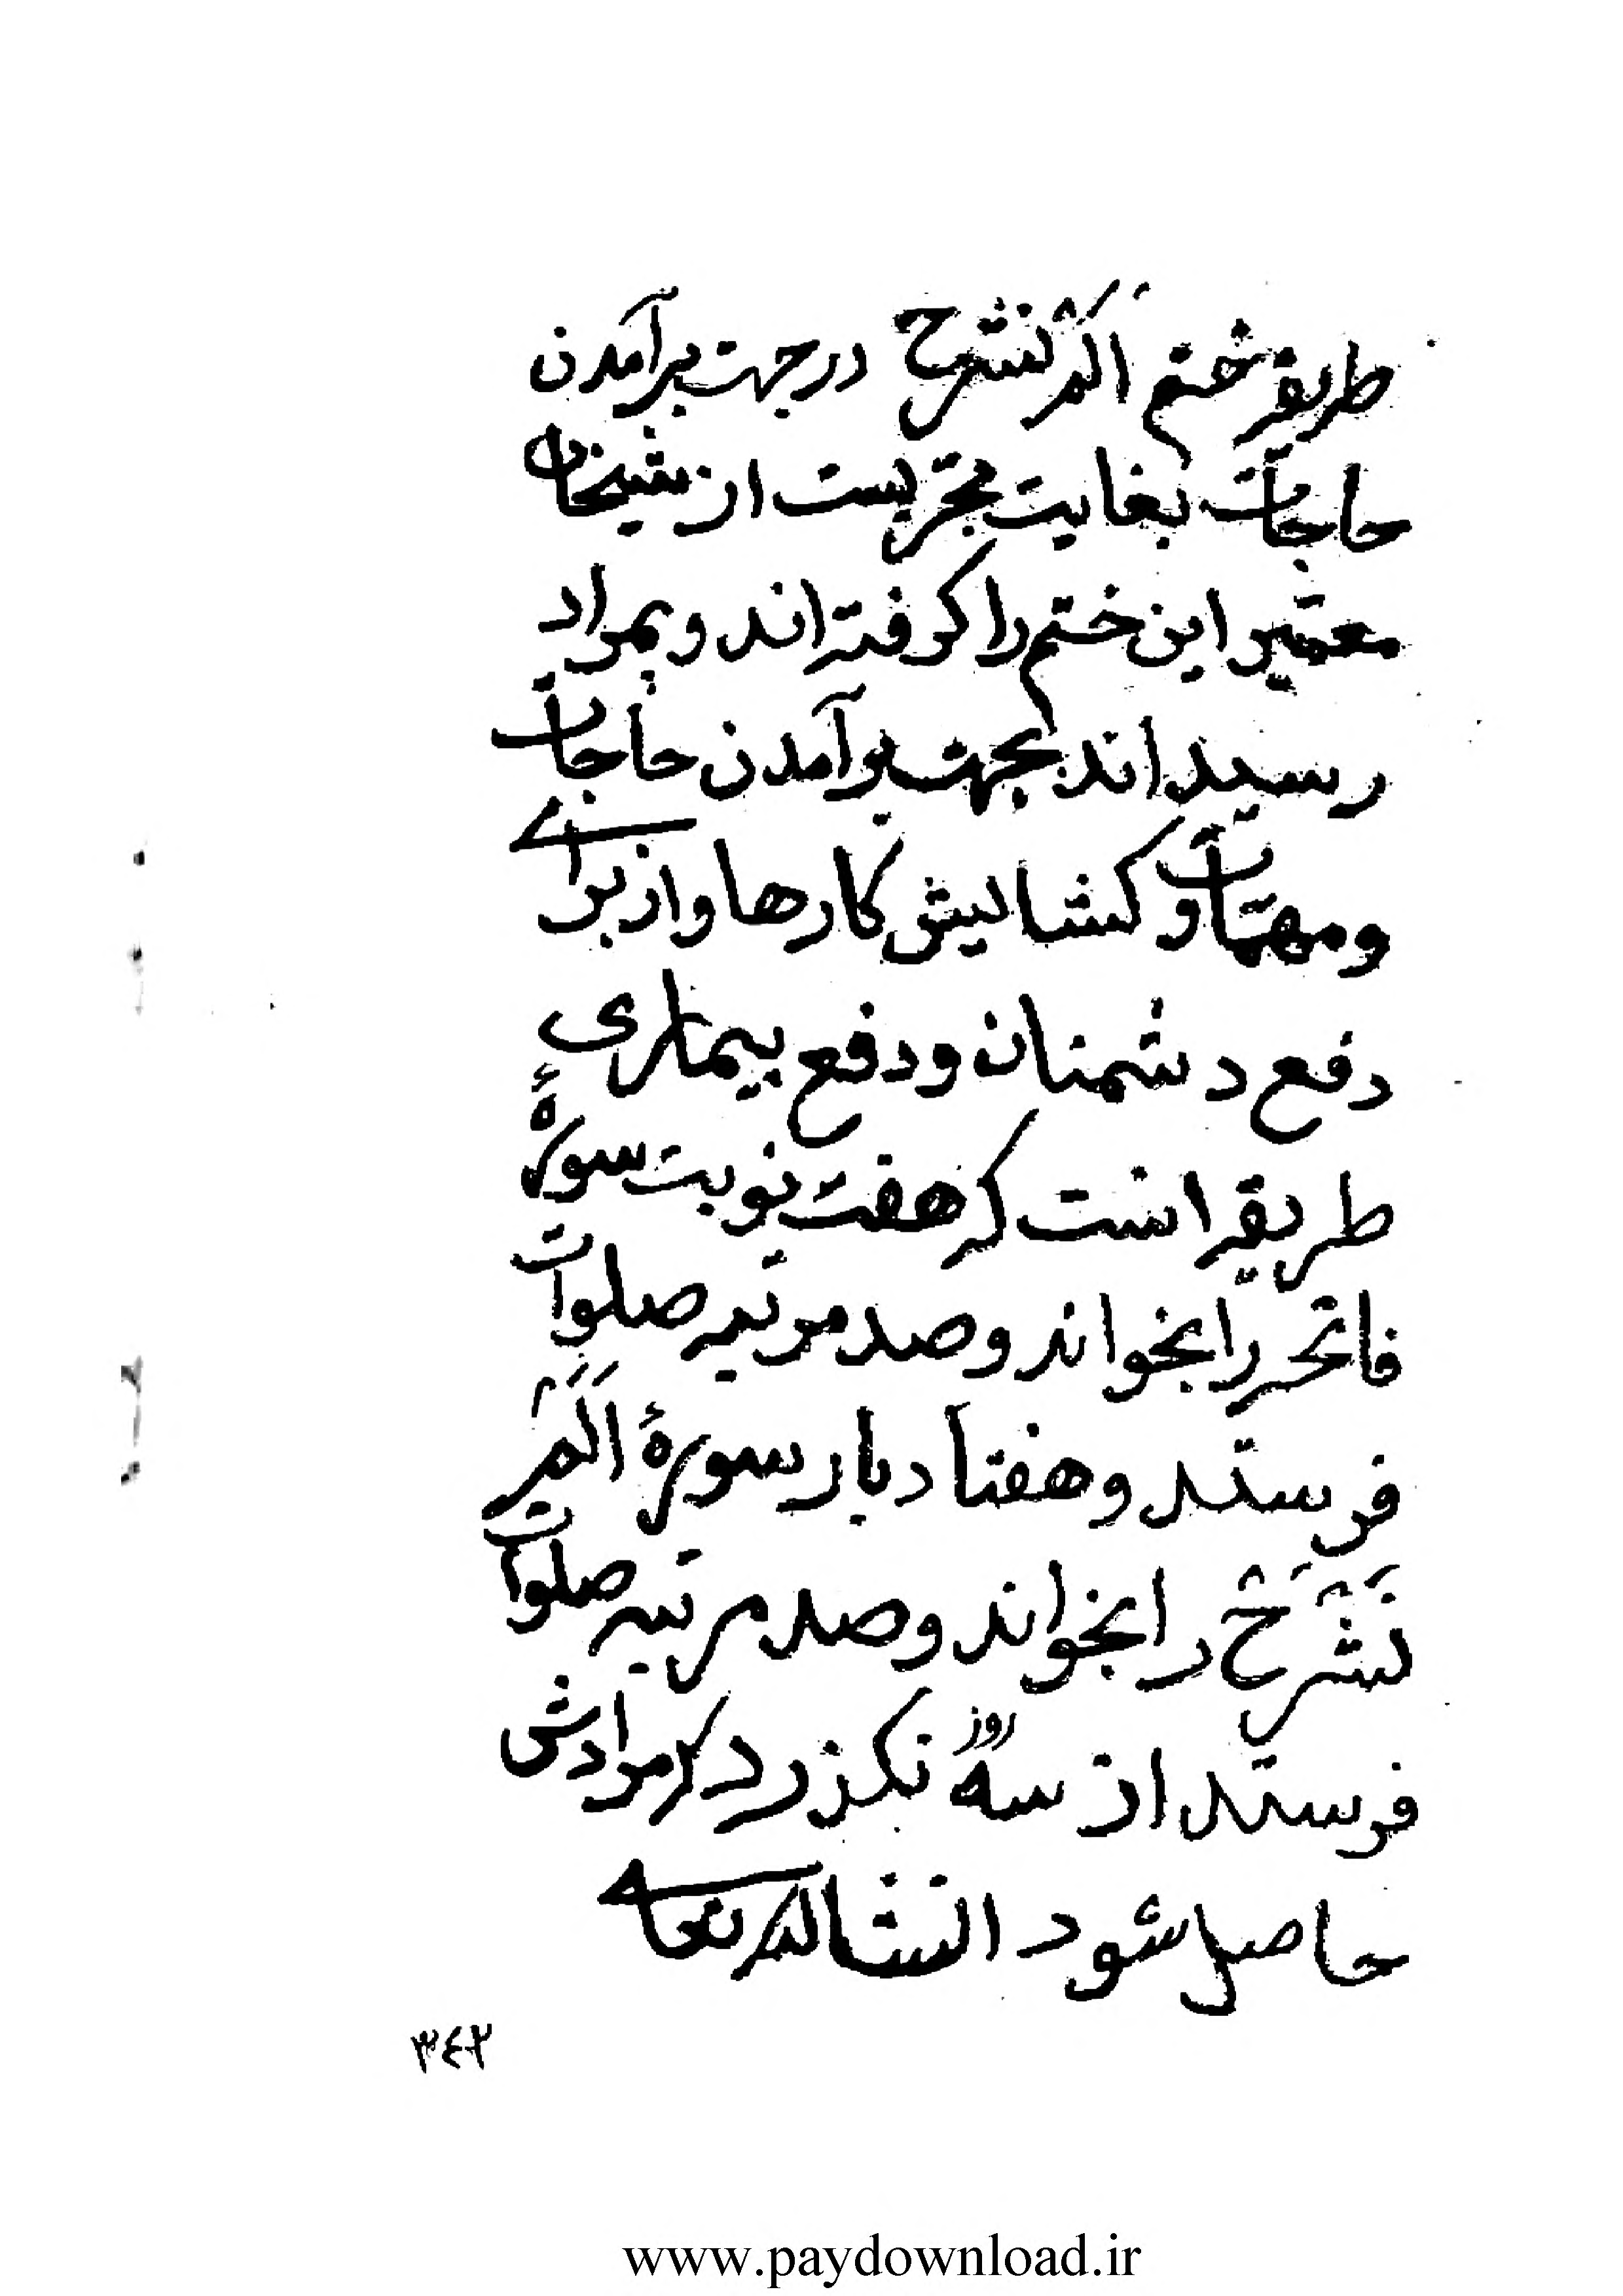 طریقه ختم اَلَمْ نشرح در جهت برآمدن
حاجات بغایت مجرّبست از شیخان
معتبر این ختم را کرفته اند و بمراد
رسیده اند بجهت برآمدن حاجات
و مهمّات و کشایش کارها و از برای
دفع دشمنان و دفع بیماری
طریقه انست که هفت نوبت سورهٔ
فاتحه را بخواند و صد مرتبه صلوات
فرستد و هفتاد بار سورهٔ اَلَمْ
نَشْرَحْ را بخواند و صد مرتبه صلوات
فرستد از سه روز نکذرد که مرادش
حاصل شود انشاالله تعالی
۳٤۲
www.paydownload.ir